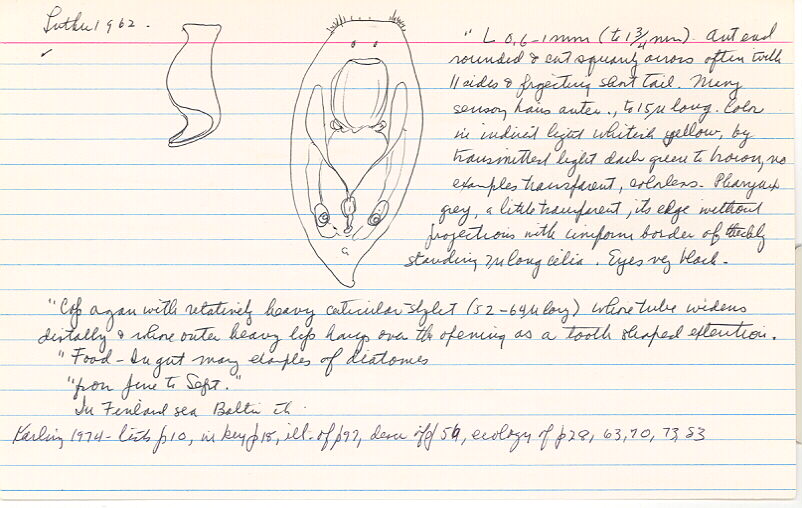 Luther 1962.
✓
" L 0.6-1mm (to 1 3/4 mm). Ant end
rounded & cut squarely across often with
11 sides & projecting short tail. Many
sensory hairs anter., to 15µ long. Color
in indirect light whitish yellow, by
transmitted light dark green to brown, no
examples transparent, colorless. Pharynx
grey, a little transparent, its edge without
projections with ciniform border of thickly
standing 7µ long cilia. Eyes very black-
"Cop organ with relatively heavy cuticular stylet (52-64µ long) whose tube widens
distally & whose outer heavy lip hangs over the opening as a tooth shaped extention.
"Food - In gut many examples of diatomes
"from June to Sept."
In Finland sea Baltic
Karling 1974 - lists p10, in key p18, ill. of p97, descr of p 59, ecology of p28, 63, 70, 73, 83